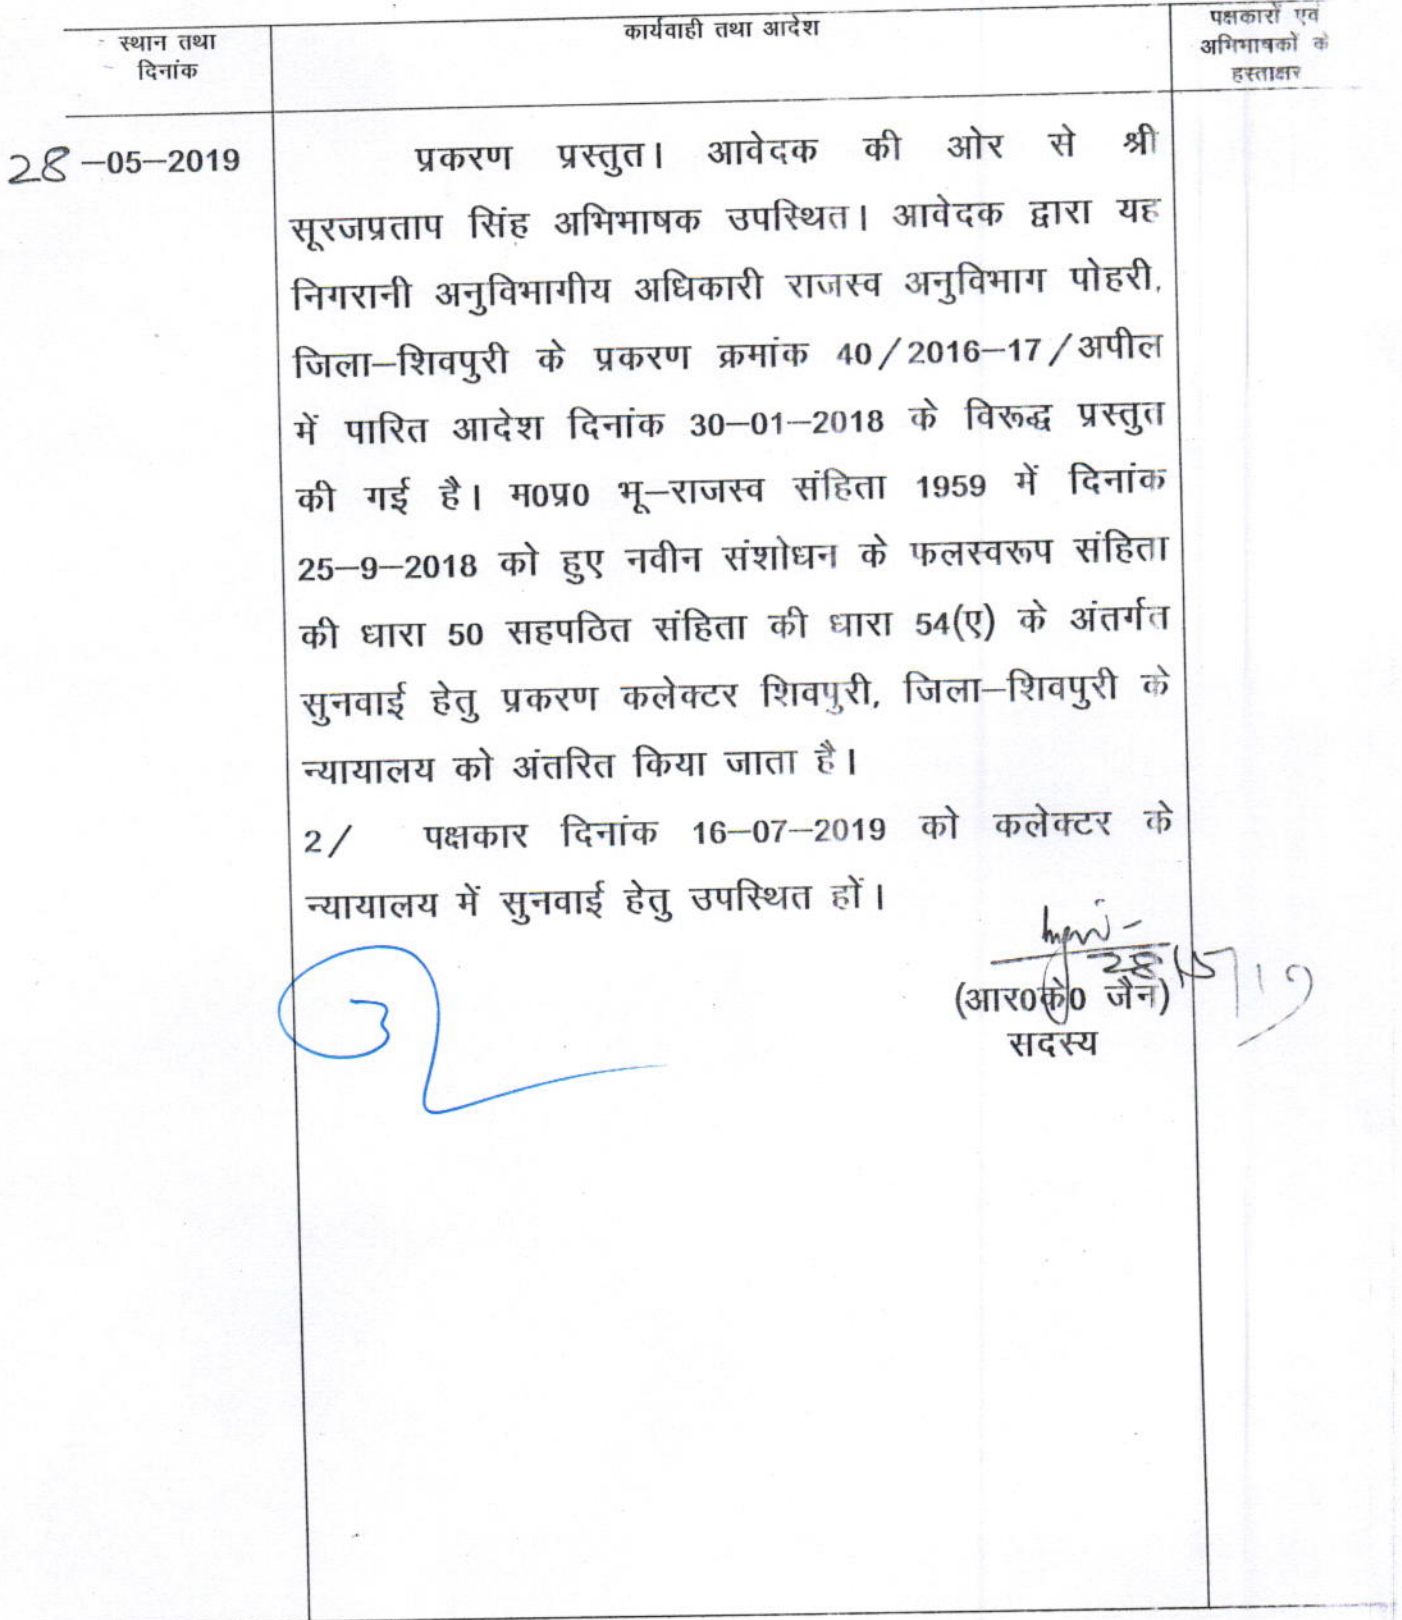 स्थान तथा
दिनांक
कार्यवाही तथा आदेश
पक्षकारों एवं
अभिभाषकों के
हस्ताक्षर
28-05-2019
प्रकरण प्रस्तुत। आवेदक की ओर से श्री
सूरजप्रताप सिंह अभिभाषक उपस्थित। आवेदक द्वारा यह
निगरानी अनुविभागीय अधिकारी राजस्व अनुविभाग पोहरी,
जिला-शिवपुरी के प्रकरण क्रमांक 40/2016-17/अपील
में पारित आदेश दिनांक 30-01-2018 के विरूद्ध प्रस्तुत
की गई है। म0प्र0 भू-राजस्व संहिता 1959 में दिनांक
25-9-2018 को हुए नवीन संशोधन के फलस्वरूप संहिता
की धारा 50 सहपठित संहिता की धारा 54(ए) के अंतर्गत
सुनवाई हेतु प्रकरण कलेक्टर शिवपुरी, जिला-शिवपुरी के
न्यायालय को अंतरित किया जाता है।
2/ पक्षकार दिनांक 16-07-2019 को कलेक्टर के
न्यायालय में सुनवाई हेतु उपस्थित हों।
28/5/19
(आर0के0 जैन)
सदस्य